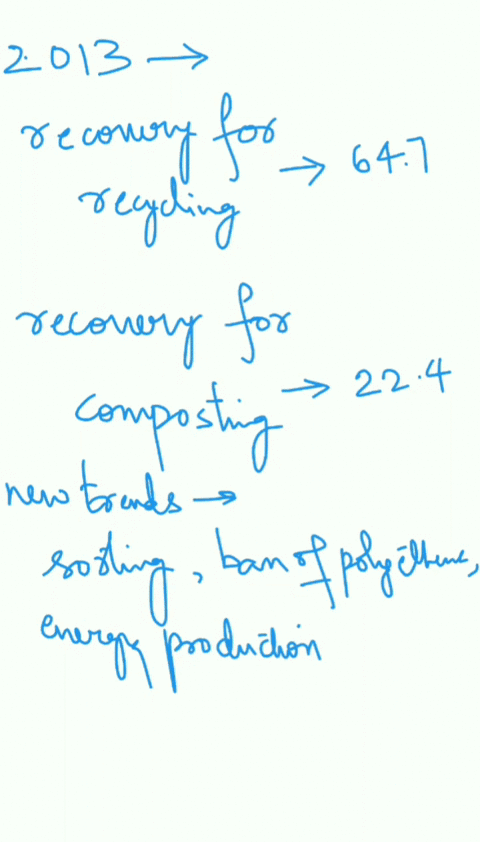 2013 →
recovery for
recycling → 64.7
recovery for
composting → 22.4
new trends →
sorting, ban of polyethene,
energy production